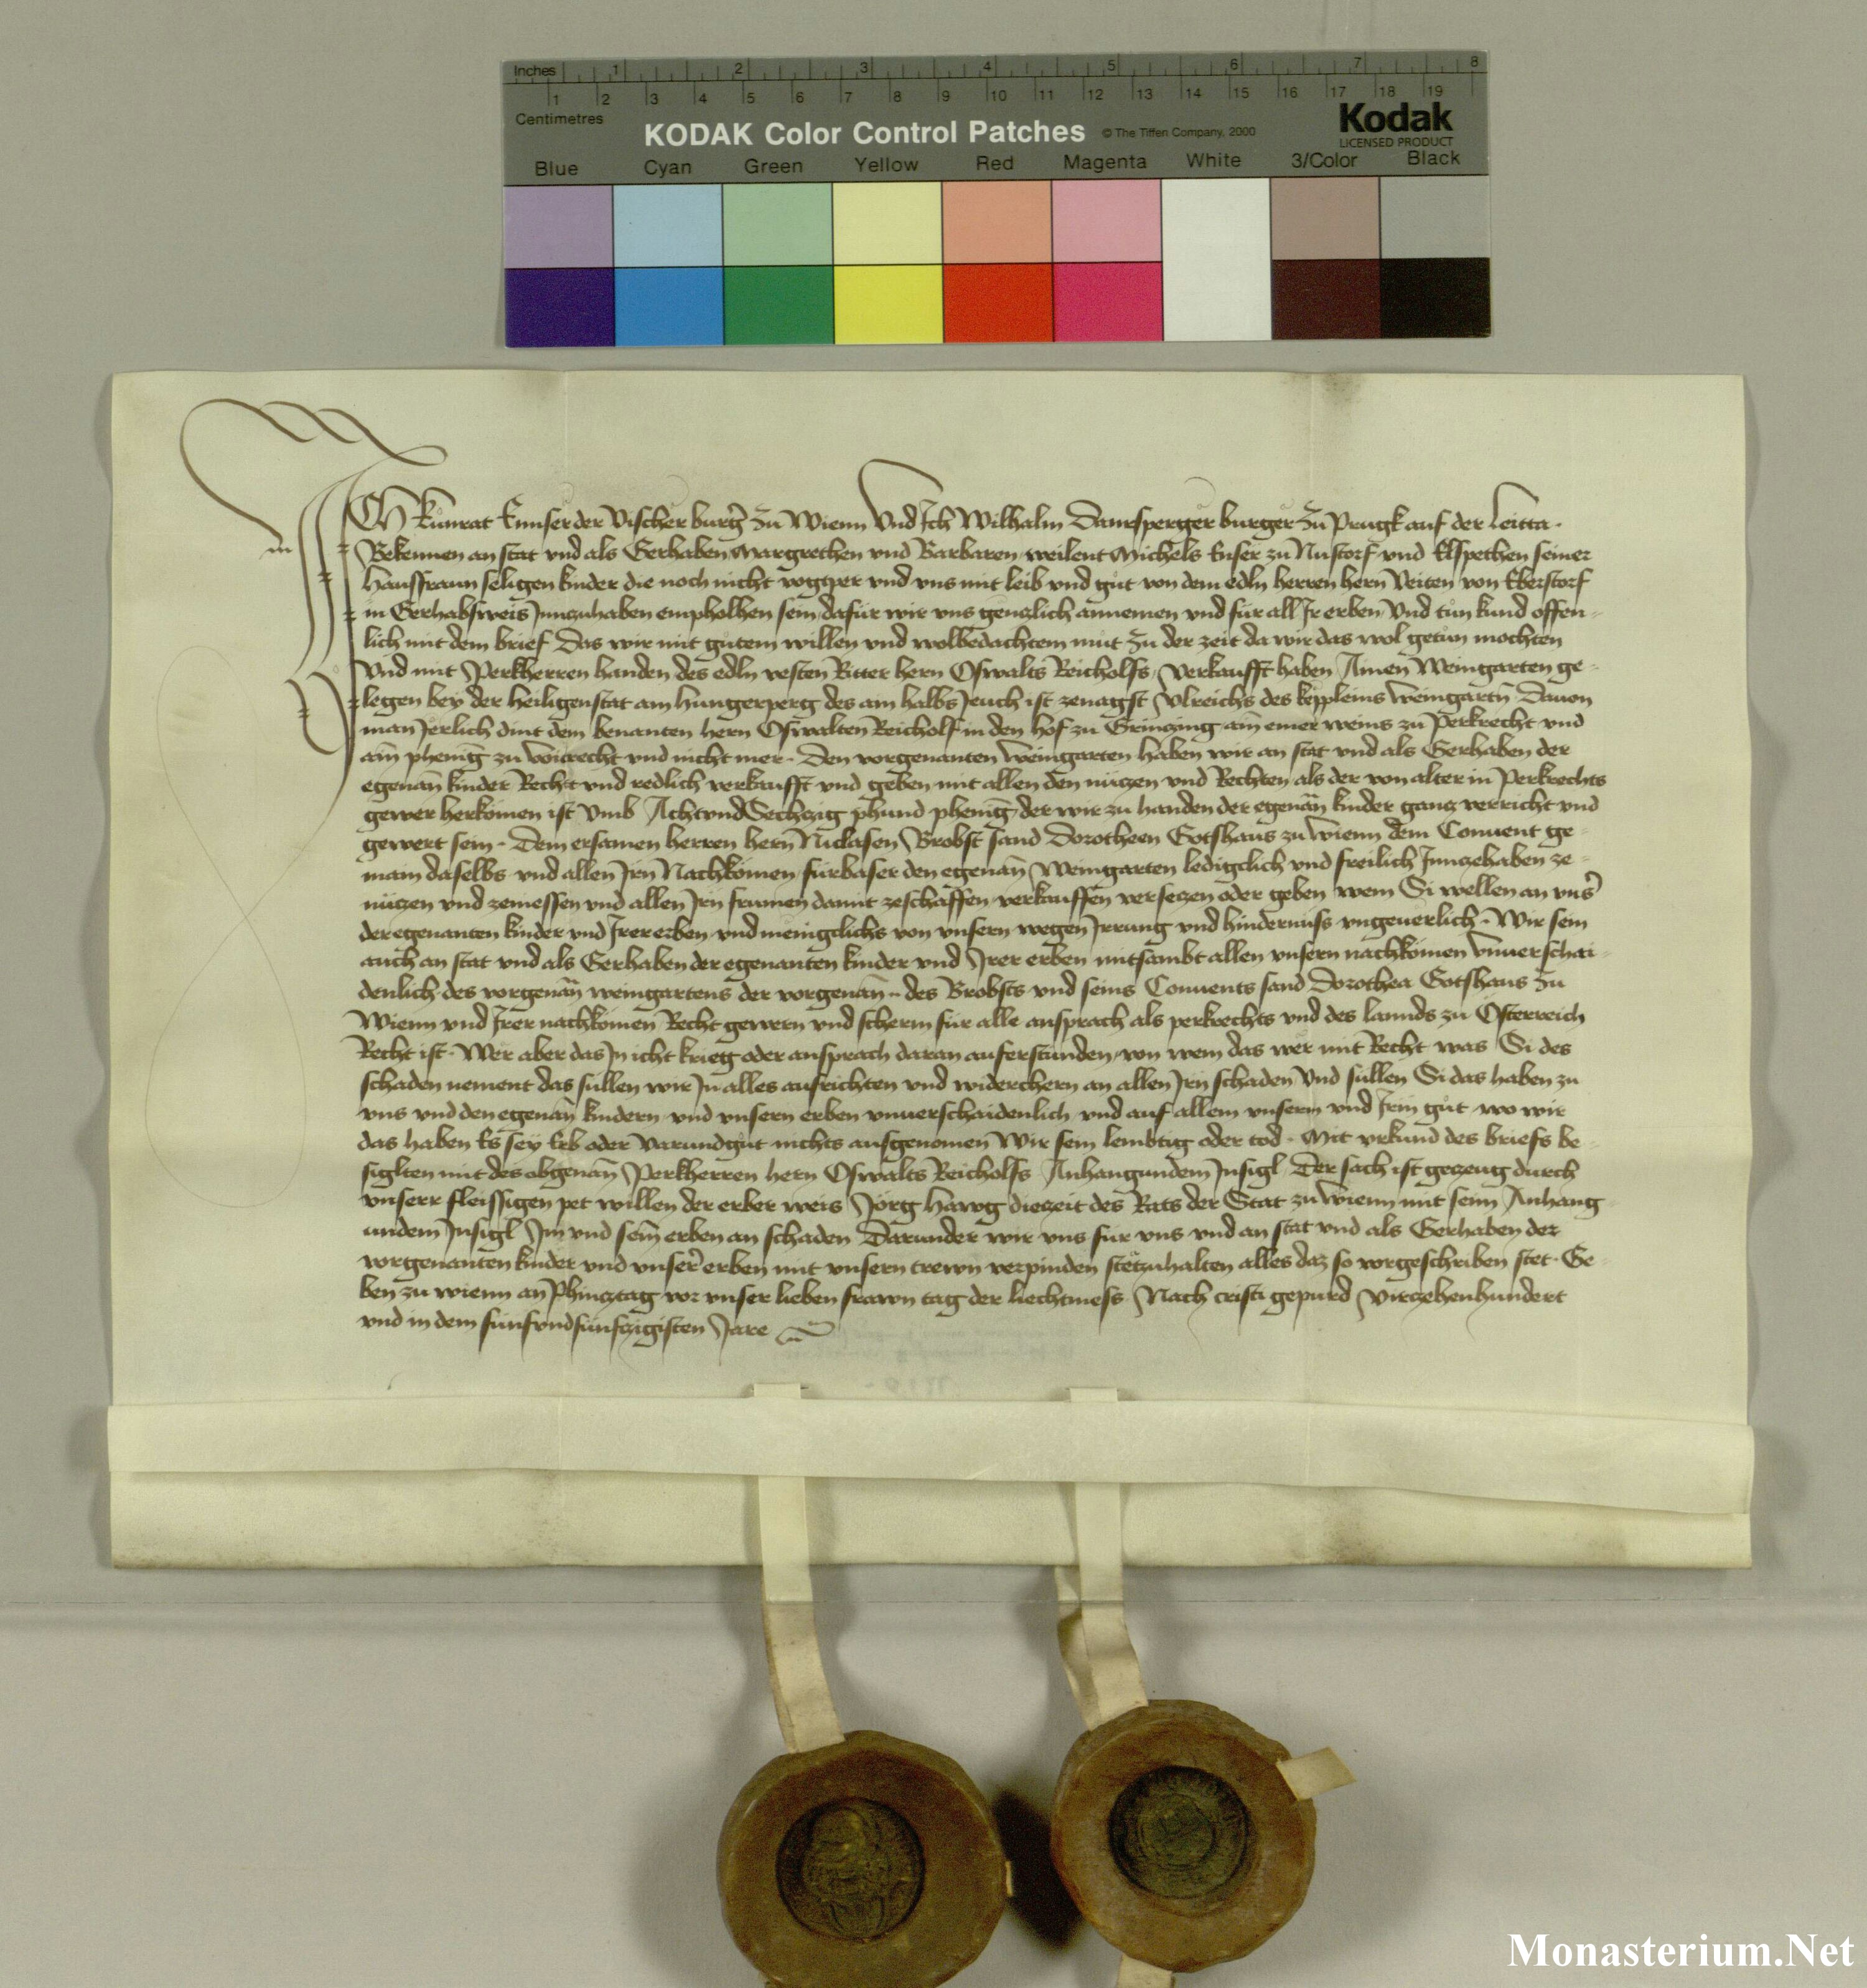 Inches 1 2 3 4 5 6 7 8
1 2 3 4 5 6 7 8 9 10 11 12 13 14 15 16 17 18 19
Centimetres
KODAK Color Control Patches © The Tiffen Company, 2000
Kodak
LICENSED PRODUCT
Blue Cyan Green Yellow Red Magenta White 3/Color Black
ICh Kunrat der Vischer burg̃ zu Wienn Vnd Ich Wilhalm burger zu Prugk auf der Leitta
Bekennen an stat vnd als Gerhaben Margrethen vnd Barbaren weilent Michels zu Nustorf vnd Elspethen seiner
Hausfraun seligen kinder die noch nicht vogtper vnd vns mit leib vnd gůt von dem edln herren hern Veiten von Eberstorf
in Gerhabsweis Innczuhaben empholhen sein dafür wir vns genczlich annemen vnd für all Ir erben Vnd tůn kund offen-
lich mit dem brief Das wir mit gůtem willen vnd wolbedachtem můt zu der zeit da wir das wol getůn mochten
Vnd mit Perkherren handen des edln vesten Ritter hern Oswalts Reicholfs verkaufft haben Ainen Weingarten ge-
legen bey der Heiligenstat am Hungerperg des ain halbs Jeuch ist zenagst Vlreichs des keppleins weingartñ Dauon
man Jerlich dint dem benanten hern Oswalten Reicholf in den hof zu Grinczing ain emer weins zu Perkrecht vnd
ain phenig̃ zu voitrecht vnd nicht mer. Den vorgenanten weingarten haben wir an stat vnd als Gerhaben der
egenañ kinder Recht vnd redlich verkaufft vnd geben mit allen den nüczen vnd Rechten als der von alter in Perkrechts
gewer herkomen ist Vmb AchtvndSechczig phund phenig̃ der wir zu handen der egenañ kinder gancz verricht vnd
gewert sein. Dem ersamen herren herñ Niclasen Brobst sand Dorotheen Gotshaus zu Wienn dem Conuent ge-
main daselbs vnd allen Irñ Nachkomen fürbaser den egenañ Weingarten ledigclich vnd freilich Innczehaben ze-
nüczen vnd zeniessen vnd allen Irñ frumen damit zeschaffen verkauffen verseczen oder geben wem Si wellen an vnser̃
der egenanten kinder vnd Irer erben vnd menigclichs von vnsern wegen Irrung vnd hindernüss vngeuerlich. Wir sein
auch an stat vnd als Gerhaben der egenanten kinder vnd Irer erben mitsambt allen vnsern nachkomen vnuerschai-
denlich des vorgenañ weingartens der vorgenañ des Brobsts vnd seins Conuents sand Dorothea Gotshaus zu
Wienn vnd Irer nachkomen Recht gewern vnd scherm für alle ansprach als perkrechts vnd des lannds zu Österreich
Recht ist. Wer aber das In icht krieg oder ansprach daran auferstünden von wem das wer mit Recht was Si des
schaden nement das süllen wir In alles ausrichten vnd widerchern an allen Irñ schaden Vnd süllen Si das haben zu
vns vnd den egenañ kindern vnd vnsern erben vnuerschaidenlich vnd auf allem vnserm vnd Irm gůt wo wir
das haben Es sey Erb oder Varundgůt nichts ausgenomen Wir sein lembtig oder tod. Mit vrkund des briefs be-
siglten mit des obgenañ Perkherren hern Oswalts Reicholfs Anhangundem Insigl Der sach ist geczeug durch
vnserr fleissigen pet willen der erber weis Jorg Hawg dieczeit des Rats der Stat zu Wienn mit seim Anhang
undem Insigl Im vnd sein erben an schaden Darunder wir vns für vns vnd an stat vnd als Gerhaben der
vorgenanten kinder vnd vnser̃ erben mit vnsern trewn verpinden stët zuhalten alles daz so vorgeschriben stet. Ge-
ben zu Wienn an Phincztag vor vnser lieben frawn tag der liechtmess Nach cristi gepurd virczehenhundert
vnd in dem fünfvndfünfczigisten Jare
Monasterium.Net